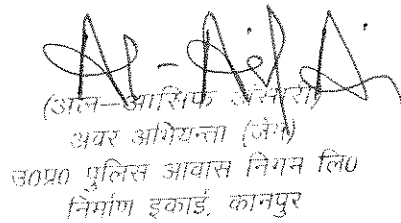 (अल-आसिफ अंसारी)
अवर अभियन्ता (जे०)
उ०प्र० पुलिस आवास निगम लि०
निर्माण इकाई, कानपुर